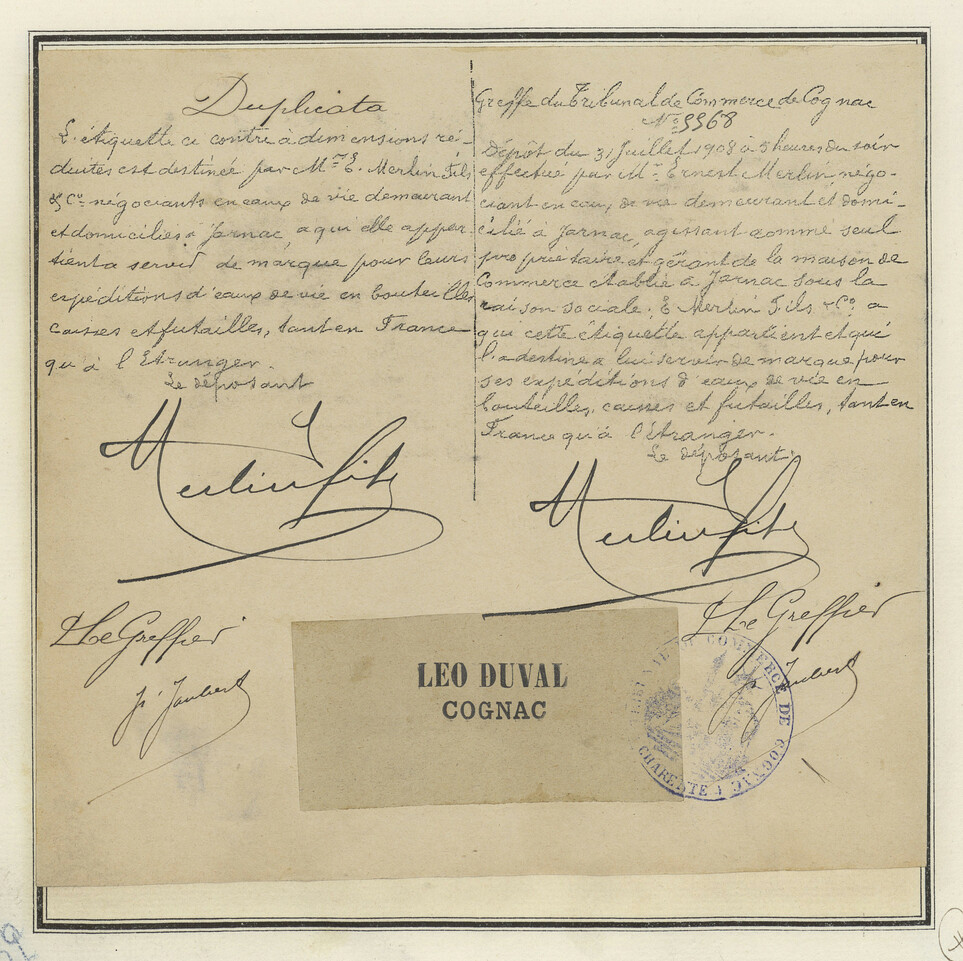 Duplicata
L'étiquette ci contre à dimensions ré-
duites est destinée par Mrs E. Merlin Fils
& Co négociants en eaux de vie demeurant
et domiciliés à Jarnac, à qui elle appar-
tient à servir de marque pour leurs
expéditions d'eaux de vie en bouteilles
caisses et futailles, tant en France
qu'à l'Etranger.
Le déposant
Merlin Fils
Le Greffier
Jaubert
Greffe du Tribunal de Commerce de Cognac
No 5568
Dépôt du 31 Juillet 1908 à 5 heures du soir
effectué par Mr Ernest Merlin négo-
ciant en eaux de vie demeurant et domi-
cilié à Jarnac, agissant comme seul
propriétaire et gérant de la maison de
Commerce établie à Jarnac sous la
raison sociale: E Merlin Fils & Co a
qui cette étiquette appartient et qui
l'a destine a lui servir de marque pour
ses expéditions d'eaux de vie en
bouteilles, caisses et futailles, tant en
France qu'à l'étranger.
Le déposant
Merlin Fils
Le Greffier
Jaubert
LEO DUVAL
COGNAC
TRIBUNAL DE COMMERCE DE COGNAC
CHARENTE